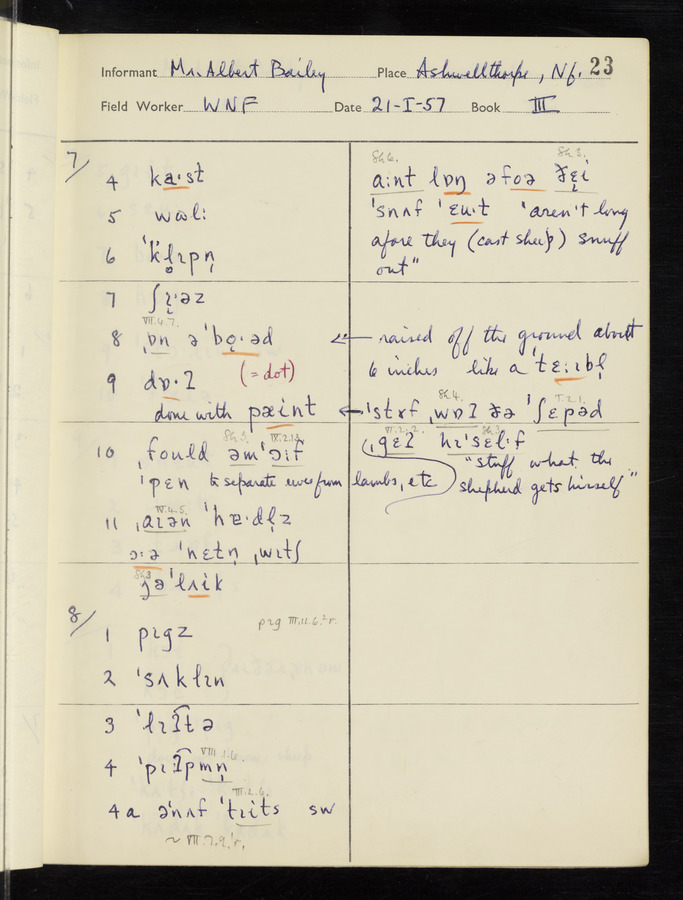 Informant Mr. Albert Bailey Place Ashwellthorpe, Nf. 23
Field Worker WNF Date 21-I-57 Book III
7/
4 kaˑst
5 wɒlː
6 ˈkl̥ɪpn̩
7 ʃɪ̨ˑəz
VII.4.7.
8 ˌɒn ə ˈbo̜ˑəd
9 dɒˑʔ (= dot)
done with pæint
Sh3. IX.2.12.
10 ˌfould əmˈɔif
ˈpɛn to separate ewes from lambs, etc
IV.4.5.
11 ˌaɪən ˈhɐˑdl̩z
ɔːə ˈnɛtn̩ ˌwɪtʃ
Sh3
jəˈlʌik
8/
1 pɪgz pɪg III.11.6.²r.
2 ˈsʌklɪn
3 ˈlɪʔ͡tə
VIII.1.6.
4 ˈpɪʔ͡pmn̩
III.2.6.
4a əˈnʌf ˈtɪits sw
~ VII.7.9.¹r.
Sh6. Sh3.
aːnt lɒŋ əfoə ðɛ̨i
ˈsnʌf ˈɛuˑt "aren't long
afore they (cast sheep) snuff
out"
← raised off the ground about
6 inches like a ˈtɛːɪbl̩
Sh4. I.2.1.
← ˈstɤf ˌwɒʔ ðə ˈʃɛpəd
VI.2.2. Sh3.
ˌgɛʔ hɪˈsɛlˑf
"stuff what the
shepherd gets himself"